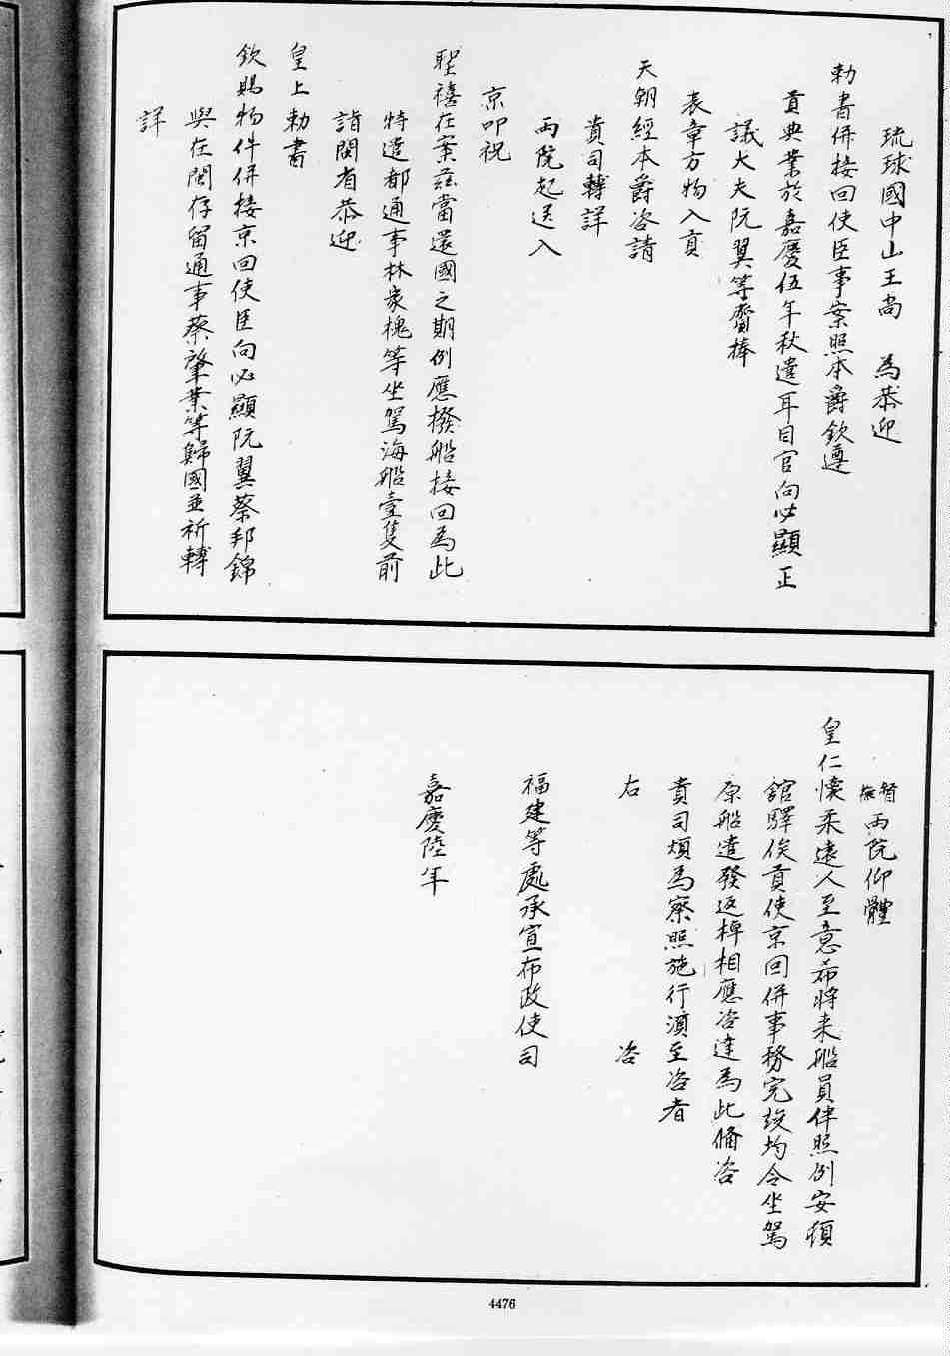 琉球國中山王尚　為恭迎
勅書併接回使臣事案照本爵欽遵
貢典業於嘉慶伍年秋遣耳目官向必顯正
議大夫阮翼等齎捧
表章方物入貢
天朝經本爵咨請
貴司轉詳
兩院起送入
京叩祝
聖禧在案茲當還國之期例應撥船接回為此
特遣都通事林家槐等坐駕海船壹隻前
詣閩省恭迎
皇上勅書
欽賜物件併接京回使臣向必顯阮翼蔡邦錦
與在閩存留通事蔡肇業等歸國並祈轉
詳
督撫兩院仰體
皇仁懷柔遠人至意希將来船員伴照例安頓
舘驛俟貢使京回併事務完竣均令坐駕
原船遣發返棹相應咨達為此俻咨
貴司煩為察照施行湏至咨者
右　咨
福建等處承宣布政使司
嘉慶陸年
4476